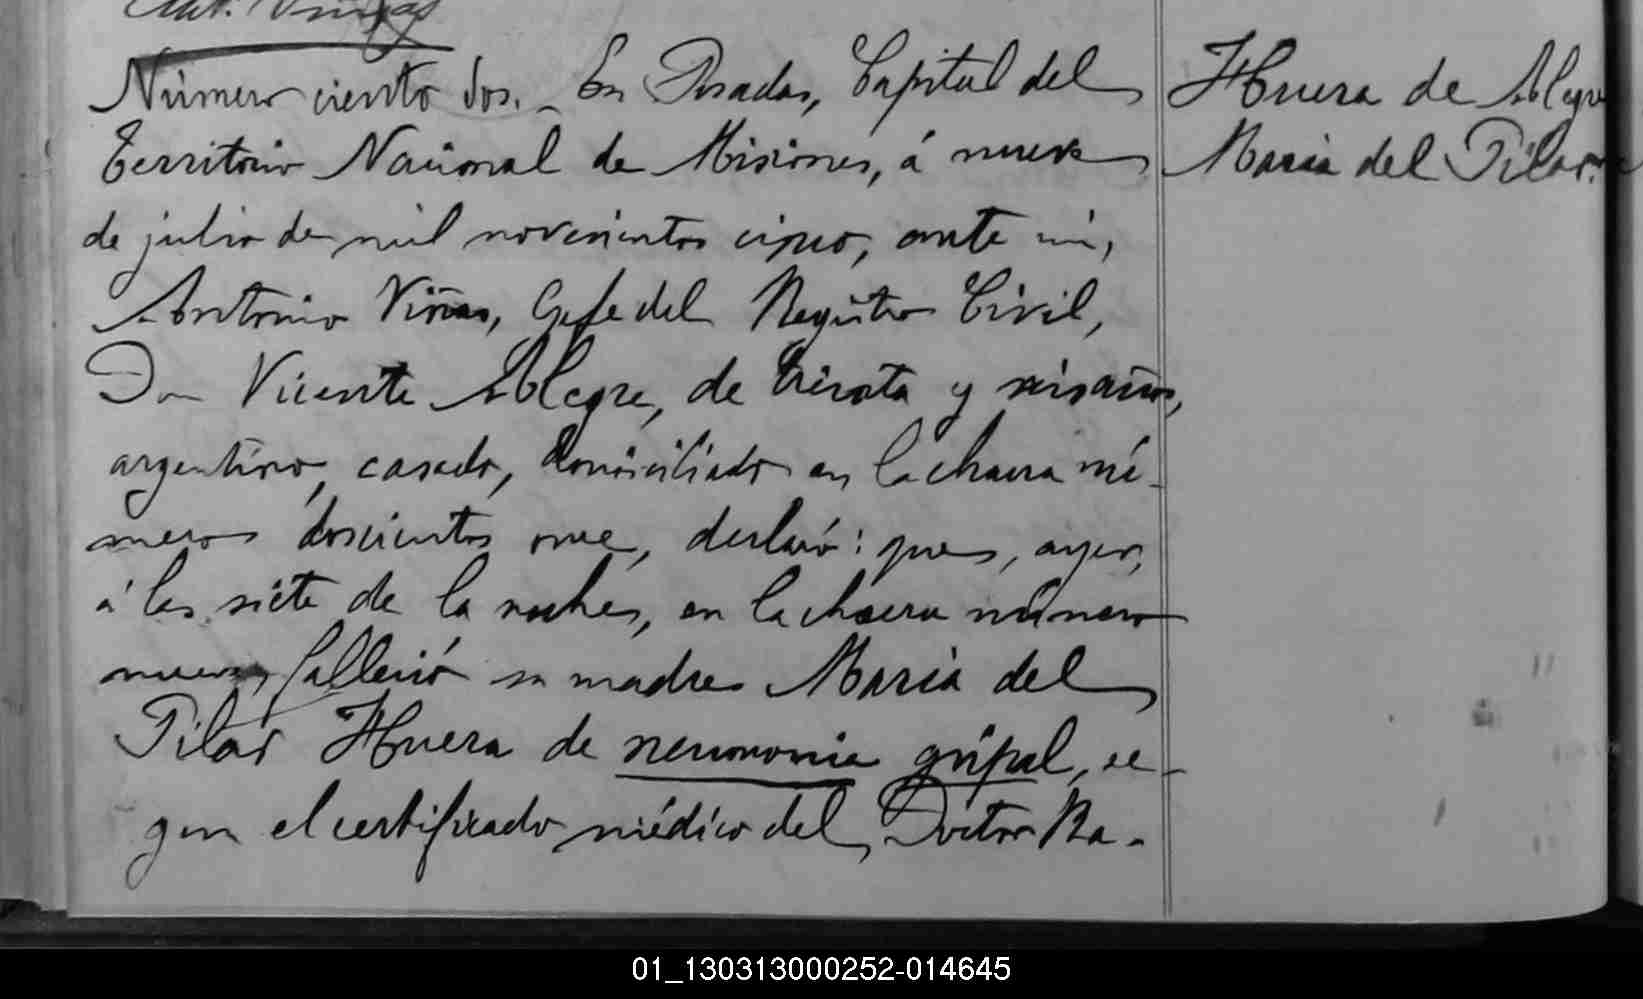 Ant. Viñas
Número ciento dos. - En Posadas, Capital del
Territorio Nacional de Misiones, á nueve
de julio de mil novecientos cinco, ante mi,
Antonio Viñas, Gefe del Registro Civil,
Don Vicente Alegre, de treinta y seis años,
argentino, casado, domiciliado en la chacra nú-
mero doscientos once, declaró: que, ayer,
á las siete de la noche, en la chacra número
nueve, falleció su madre María del
Pilar Huera de neumonia gripal, se-
gun el certificado médico del Doctor Ra-
Huera de Alegre
María del Pilar.
01_130313000252-014645